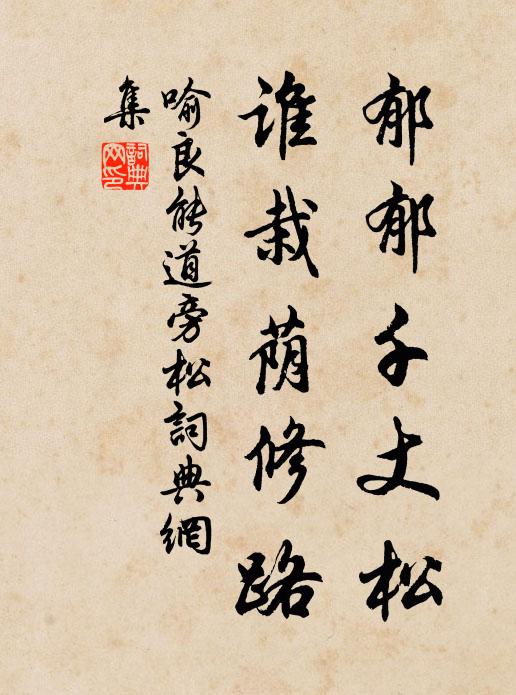 郁郁千丈松
谁栽荫修路
喻良能道旁松詞典網
集
詞典
网印